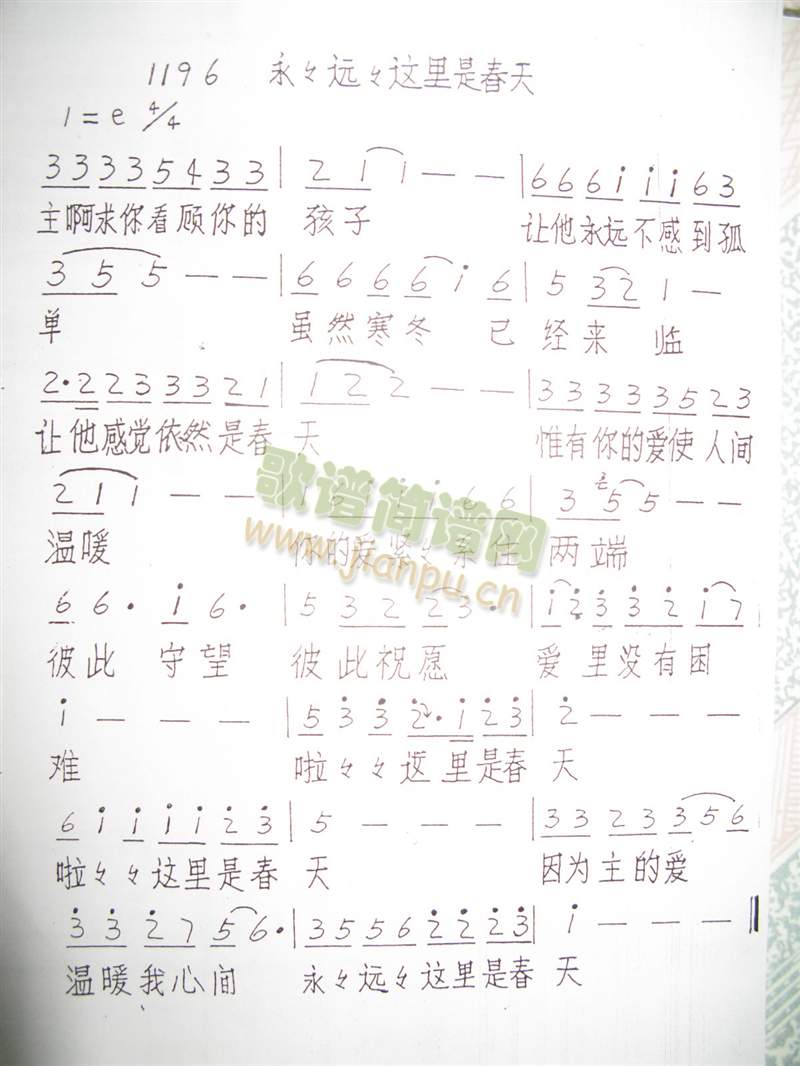 1196 永々远々这里是春天
1=e 4/4
3 3 3 3 5 4 3 3 | 2 1 1 — — | 6 6 6 i i i 6 3
主啊求你看顾你的 孩子 让他永远不感到孤
3 5 5 — — | 6 6 6 6 i 6 | 5 3 2 1 —
单 虽然寒冬 已经来 临
2·2 2 3 3 3 2 1 | 1 2 2 — — | 3 3 3 3 3 5 2 3
让他感觉依然是春 天 惟有你的爱使人间
2 1 1 — — | 1 6 i i 6 6 | 3 5 5 — —
温暖 你的爱紧々系住 两端
歌谱简谱网
www.jianpu.cn
6 6· i 6· | 5 3 2 2 2 3· | i 2 3 3 2 i 7
彼此 守望 彼此祝愿 爱里没有困
i — — — | 5 3 3 2·i 2 3 | 2 — — —
难 啦々々这里是春 天
6 i i i i 2 3 | 5 — — — | 3 3 2 3 3 5 6
啦々々这里是春 天 因为主的爱
3 3 2 7 5 6· | 3 5 5 6 2 2 2 3 | i — — —
温暖我心间 永々远々这里是春 天